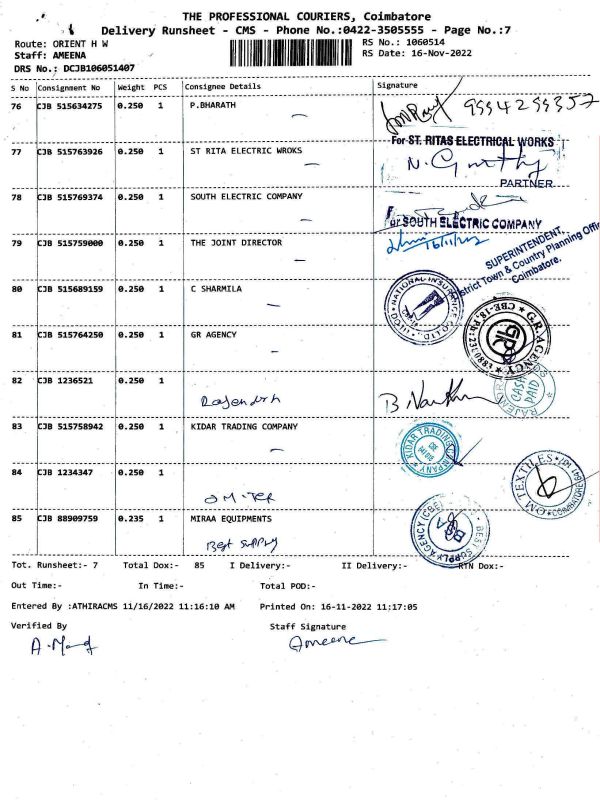 THE PROFESSIONAL COURIERS, Coimbatore
Delivery Runsheet - CMS - Phone No.:0422-3505555 - Page No.:7
Route: ORIENT H W
RS No.: 1060514
Staff: AMEENA
RS Date: 16-Nov-2022
DRS No.: DCJB106051407
S No Consignment No Weight PCS Consignee Details Signature
76 CJB 515634275 0.250 1 P.BHARATH
9994299357
For ST. RITAS ELECTRICAL WORKS
77 CJB 515763926 0.250 1 ST RITA ELECTRIC WROKS
PARTNER
78 CJB 515769374 0.250 1 SOUTH ELECTRIC COMPANY
For SOUTH ELECTRIC COMPANY
79 CJB 515759000 0.250 1 THE JOINT DIRECTOR
SUPERINTENDENT,
District Town & Country Planning Office
Coimbatore.
80 CJB 515689159 0.250 1 C SHARMILA
NATIONAL INSURANCE CO LTD.
81 CJB 515764250 0.250 1 GR AGENCY
G.R. AGENCY
GR
82 CJB 1236521 0.250 1
Rajendra
CASH PAID
83 CJB 515758942 0.250 1 KIDAR TRADING COMPANY
KIDAR TRADING COMPANY
84 CJB 1234347 0.250 1
OM TEX
OM TEXTILES
COIMBATORE
85 CJB 88909759 0.235 1 MIRAA EQUIPMENTS
Best supply
BEST SUPPLY AGENCY (CBE)
Tot. Runsheet:- 7 Total Dox:- 85 I Delivery:- II Delivery:- RTN Dox:-
Out Time:- In Time:- Total POD:-
Entered By :ATHIRACMS 11/16/2022 11:16:10 AM Printed On: 16-11-2022 11:17:05
Verified By Staff Signature
Ameena